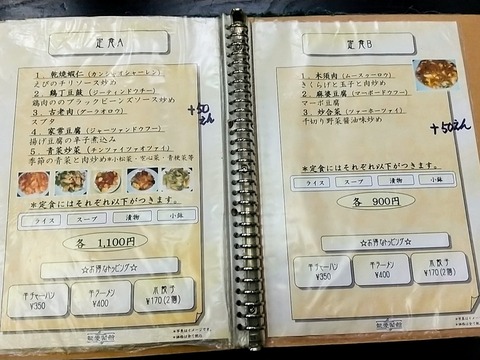 定食A
1. 乾焼蝦仁(カンシャイシャーレン)
えびのチリソース炒め
2. 鶏丁豆鼓(ジーティンドウチー)
鶏肉ののブラックビーンズソース炒め
3. 古老肉(グーラオロウ)
スブタ
4. 家常豆腐(ジャーツァンドウフー)
揚げ豆腐の辛子煮込み
5. 青菜炒菜(チンツァイツァオツァイ)
季節の青菜と肉炒め※小松菜・空心菜・青梗菜等
+50えん
*定食にはそれぞれ以下がつきます。
ライス スープ 漬物 小鉢
各 1,100円
☆お得なトッピング☆
半チャーハン ¥350
半ラーメン ¥400
水餃子 ¥170(2個)
定食B
1. 木須肉(ムースゥーロウ)
きくらげと玉子と肉炒め
2. 麻婆豆腐(マーボードウフー)
マーボ豆腐
3. 炒合菜(ツァーホーツァイ)
千切り野菜醤油味炒め
+50えん
*定食にはそれぞれ以下がつきます。
ライス スープ 漬物 小鉢
各 900円
☆お得なトッピング☆
半チャーハン ¥350
半ラーメン ¥400
水餃子 ¥170(2個)